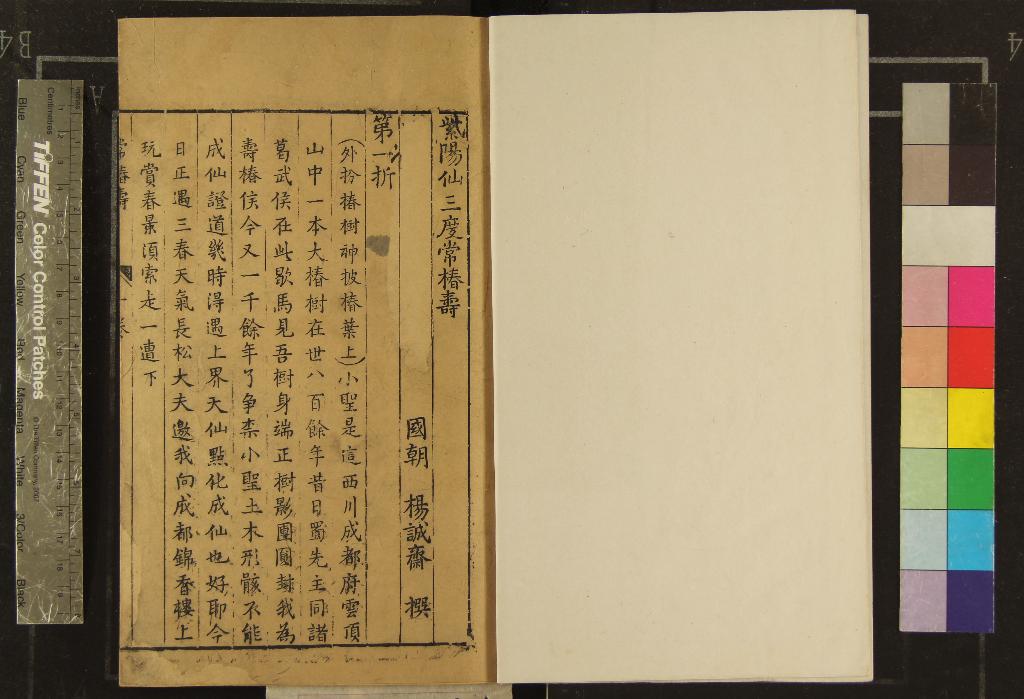 紫陽仙三度常椿壽
國朝 楊誠齋 撰
第一折
(外扮椿樹神披椿葉上)小聖是這西川成都府雲頂
山中一本大椿樹在世八百餘年昔日蜀先主同諸
葛武侯在此歇馬見吾樹身端正樹影團圓封我為
壽椿侯今又一千餘年了爭柰小聖土木形骸不能
成仙證道幾時淂遇上界天仙點化成仙也好耶今
日正遇三春天氣長松大夫邀我向成都錦香樓上
玩賞春景須索走一遭下
常椿壽
一
TIFFEN Color Control Patches
© The Tiffen Company, 2007
Centimetres
Inches
Blue
Cyan
Green
Yellow
Red
Magenta
White
3/Color
Black
B4
A
4